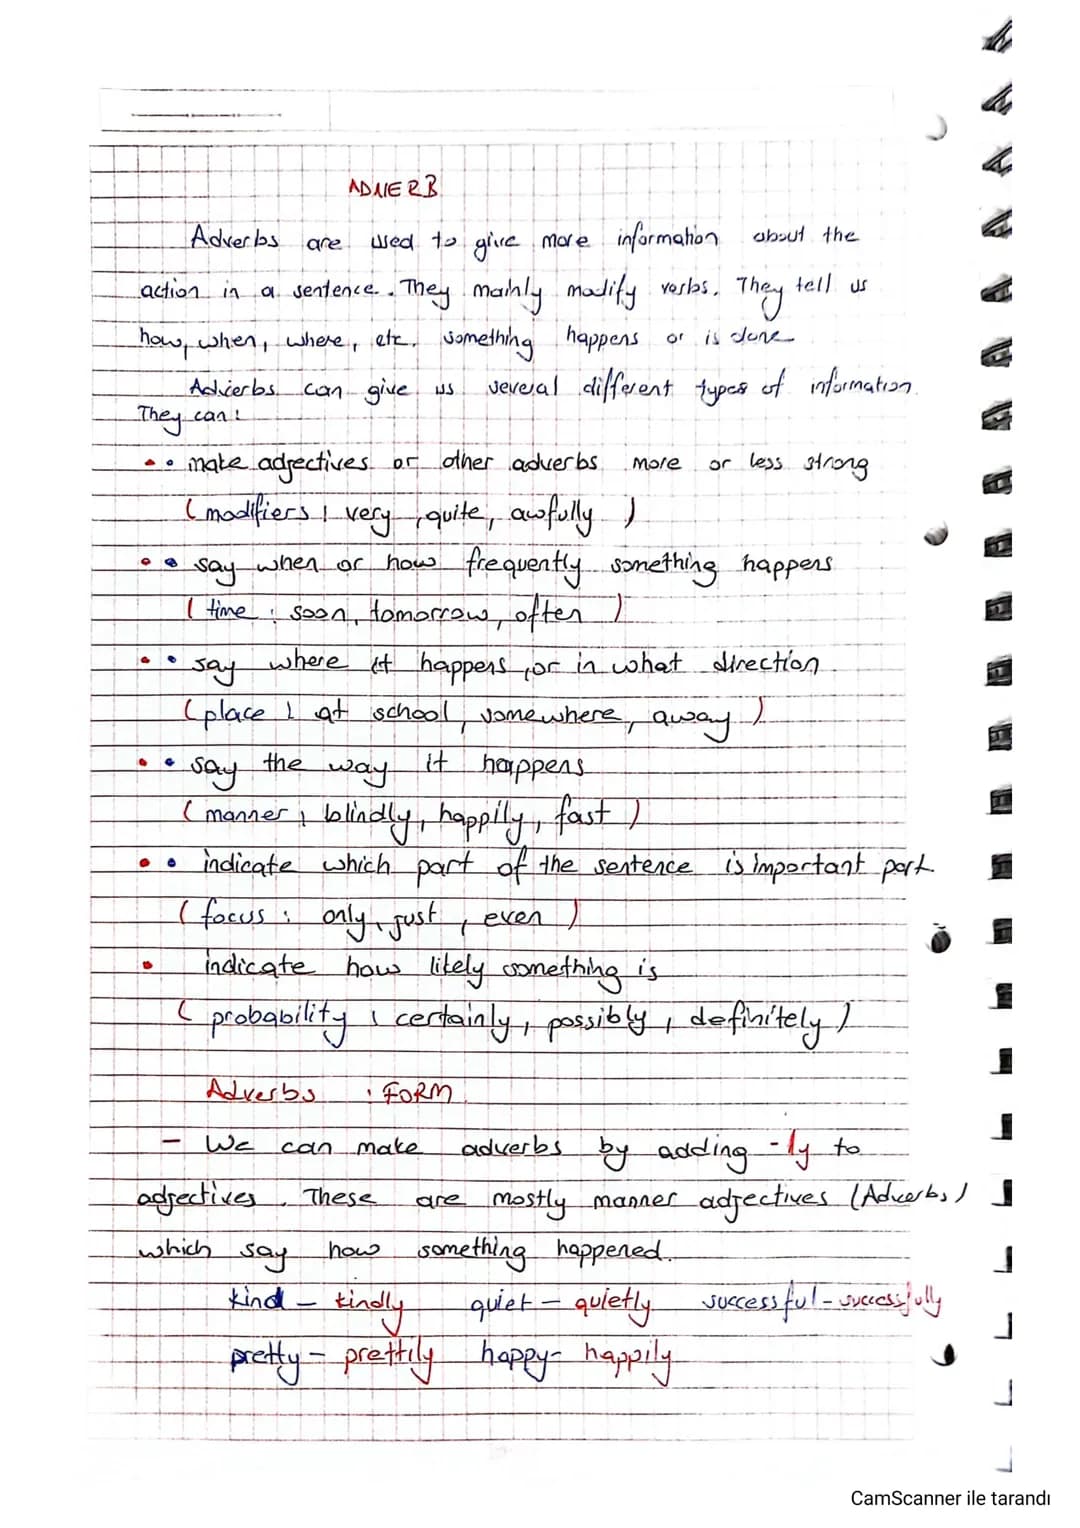 ADVERB
Adverbs are used to give more information about the
action in a sentence. They mainly modify verbs. They tell us
how, when, where, etc. something happens or is done
Adverbs can give us several different types of information.
They can:
• • make adjectives or other adverbs more or less strong
(modifiers : very, quite, awfully )
• • say when or how frequently something happens
( time : soon, tomorrow, often )
• • say where it happens, or in what direction.
(place : at school, somewhere, away )
• • say the way it happens
( manner : blindly, happily, fast )
• • indicate which part of the sentence is important part.
( focus : only, just, even )
• indicate how likely something is
( probability : certainly, possibly, definitely )
Adverbs : FORM
- We can make adverbs by adding -ly to
adjectives. These are mostly manner adjectives (Adverbs)
which say how something happened.
kind - kindly quiet - quietly successful - successfully
pretty - prettily happy - happily
CamScanner ile tarandı